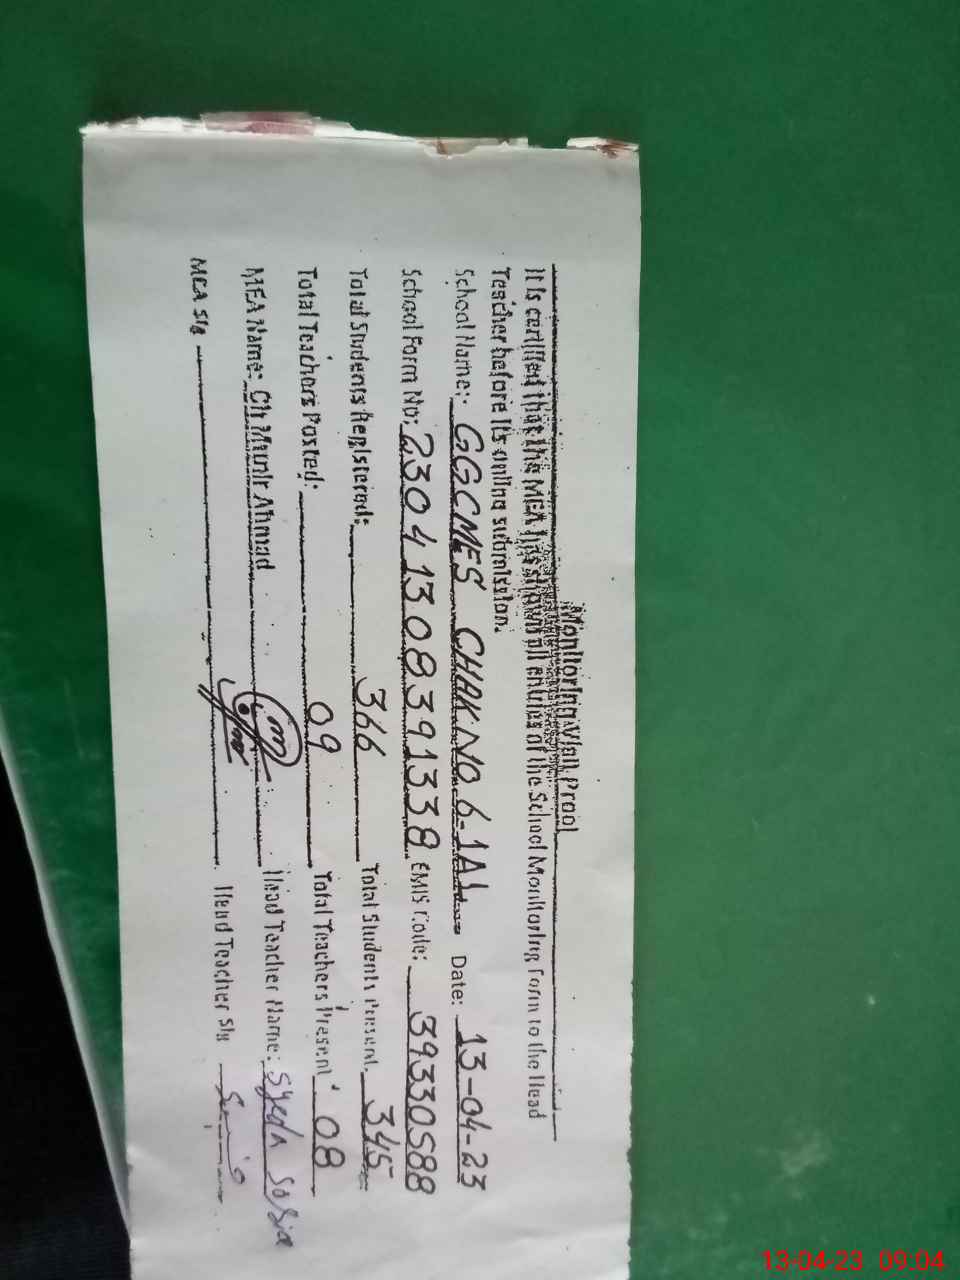 Monitoring Visit Proof
It is certified that the MEA has shown all entries of the School Monitoring Form to the Head
Teacher before its online submission.
School Name:- GGCMES CHAK NO. 6-1AL Date: 13-04-23
School Form No: 23041308391338 EMIS Code: 39330588
Total Students Registered: 366 Total Students Present. 345
Total Teachers Posted: 09 Total Teachers Present 08
MEA Name: Ch Munir Ahmad Head Teacher Name: Syeda
MEA Sig Head Teacher Sig
13-04-23 09:04